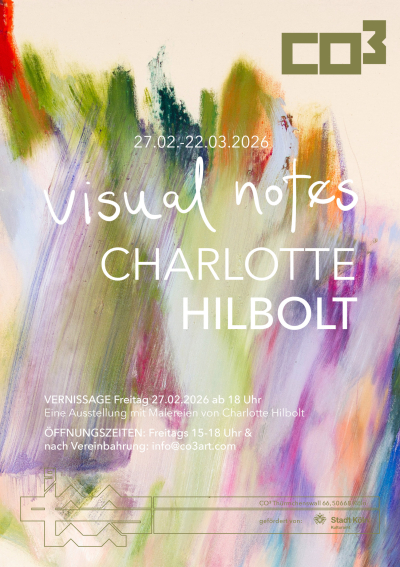 CO³
27.02.-22.03.2026
visual notes
CHARLOTTE
HILBOLT
VERNISSAGE Freitag 27.02.2026 ab 18 Uhr
Eine Ausstellung mit Malereien von Charlotte Hilbolt
ÖFFNUNGSZEITEN: Freitags 15-18 Uhr &
nach Vereinbahrung: info@co3art.com
CO³ 66, 50668 Köln
gefördert von: Stadt Köln
Kulturamt